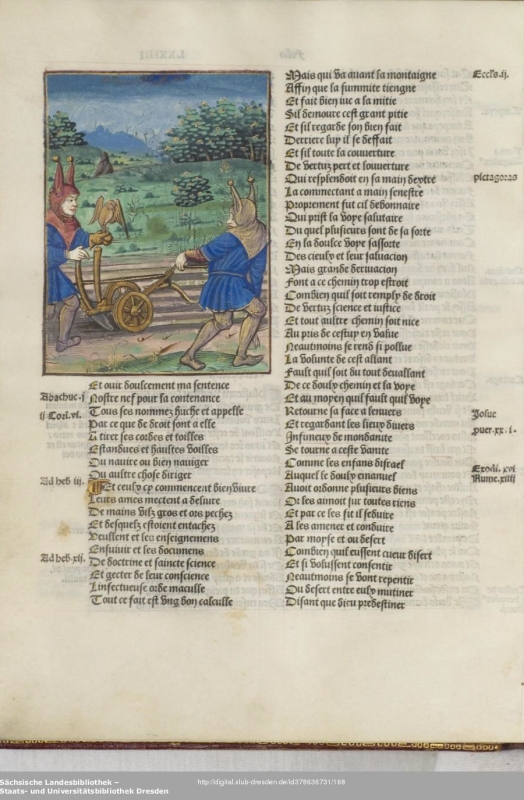 Et ouir doulcement ma sentence
Abachuc.i
Nostre nef pour la contenance
ii Cori.vi.
Tous ses nommez huche et appelle
Par ce que de droit sont a elle
A tirer ses cordes et toilles
Estandars et haultes voilles
Du nauire ou bien nauiger
Ou aultre chose diriger
Ad heb iii.
Et ceulx cy commencent bien viure
Leurs ames mectent a deliure
De mains vilz gros et ors pechez
Et desquelz estoient entachez
Veullent et les enseignemens
Ensuiuir et les documens
Ad heb.xii.
De doctrine et saincte science
Et gecter de leur conscience
Linfectueuse orde maculle
Tout ce fait est vng bon calculle
Mais qui va auant la montaigne
Eccls.ii.
Affin que la summite tiengne
Et fait bien iuc a la mitie
Sil demoure cest grant pitie
Et sil regarde son bien fait
Derriere luy il se deffait
Et sil toute la couuerture
De vertuz pert et louuerture
Qui resplendoit en sa main dextre
pictagoras
La commectant a main senestre
Proprement fut cil debonnaire
Qui prist la voye salutaire
Du quel plusieurs sont de sa sorte
En la doulce voye sassorte
Des cieulx et leur saluacion
Mais grande deriuacion
Font a ce chemin trop estroit
Combien quil soit remply de droit
De vertuz science et iustice
Et tout aultre chemin soit nice
Au pris de cestuy en value
Neautmoins se rend si pollue
La volunte de cest allant
Quil soit du tout deuallant
De ce doulx chemin et la voye
Et au moyen quil fault quil voye
Retourne sa face a seneurs
Josue
Et regardant les lieux diuers
puer.xx.i.
De mondanite
Se tourne a ceste vanite
Comme les enfans disrael
Exodi.xvi
Auquel le doulx emanuel
Nume.xiiii
Auoit ordonne plusieurs biens
Or les aimoit sur toutes riens
Et par ce les fit il seduire
A les amener et conduire
Par moyse et ou desert
Combien quil eussent cueur disert
Et si voulussent consentir
Neautmoins se vont repentir
Ou desert entre eulx mutiner
Disant que dieu predestiner
Sächsische Landesbibliothek –
Staats- und Universitätsbibliothek Dresden
http://digital.slub-dresden.de/id378636731/168